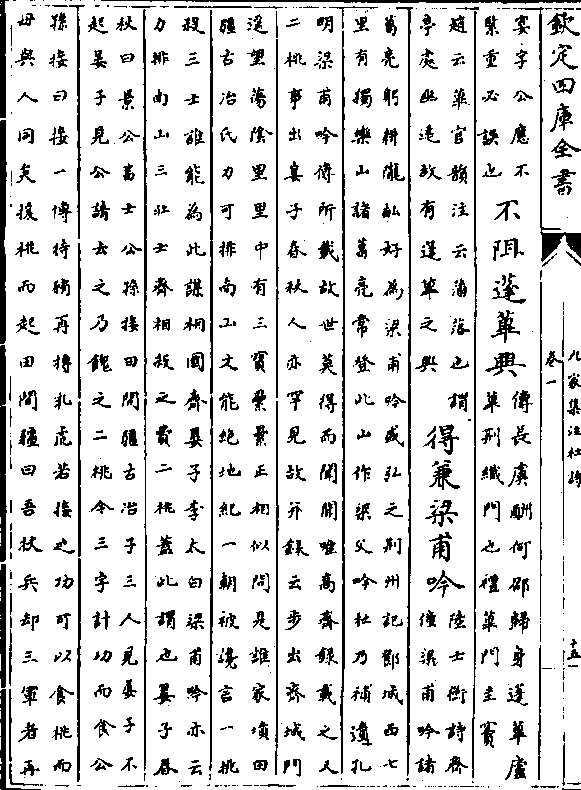 欽定四庫全書
九家集注杜詩
卷一
十五
宴字公應不
疊重必誤也
不阻蓬蓽興
傅長虞酬何邵歸身蓬蓽廬
蓽荆織門也禮蓽門圭竇
趙云蓽官韻注云藩落也謂
亭處幽遠故有蓬蓽之興
得兼梁甫吟
陸士衡詩齊
僮梁甫吟諸
葛亮躬耕隴畝好為梁甫吟盛弘之荆州記鄧城西七
里有獨樂山諸葛亮常登此山作梁父吟杜乃補遺孔
明梁甫吟傳所載故世莫得而聞聞唯高齊録載之又
二桃事出晏子春秋人亦罕見故并録云步出齊城門
遥望蕩陰里里中有三墳纍纍正相似問是誰家墳田
疆古冶氏力可排南山文能絶地紀一朝被讒言一桃
殺三士誰能為此謀相國齊晏子李太白梁甫吟亦云
力排南山三壯士齊相殺之費二桃蓋此謂也晏子春
秋曰景公畜士公孫接田開疆古冶子三人見晏子不
起晏子見公請去之乃餽之二桃令三字計功而食公
孫接曰接一搏特猏再搏乳虎若接之功可以食桃而
毋與人同矣援桃而起田開疆曰吾杖兵却三軍者再